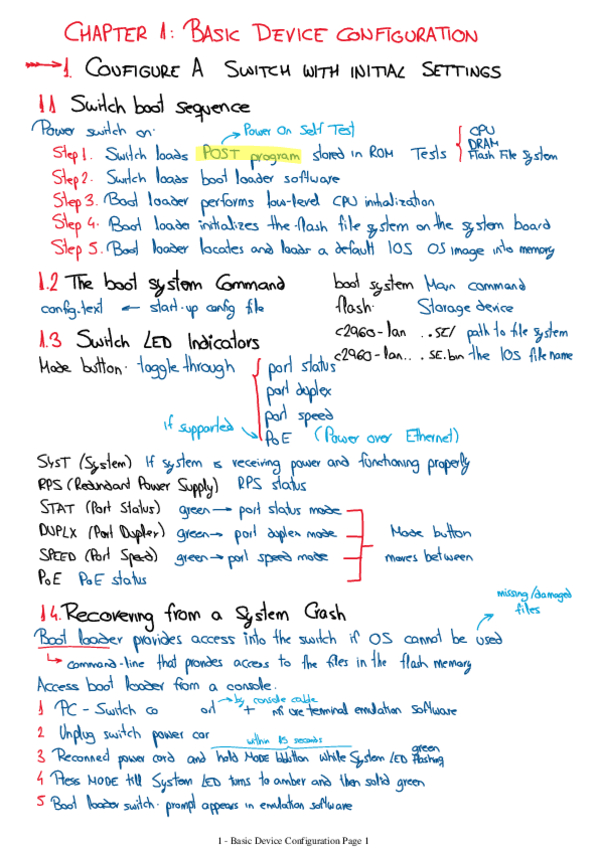 CHAPTER 1: BASIC DEVICE CONFIGURATION
1. CONFIGURE A SWITCH WITH INITIAL SETTINGS
1.1 Switch boot sequence
Power switch on:
Power On Self Test
Step 1. Switch loads POST program stored in ROM Tests
CPU
DRAM
Flash File System
Step 2. Switch loads boot loader software
Step 3. Boot loader performs low-level CPU initialization
Step 4. Boot loader initializes the flash file system on the system board
Step 5. Boot loader locates and loads a default IOS OS image into memory
1.2 The boot system Command
config.text ← start-up config file
boot system Main command
flash: Storage device
c2960-lan ..SE/ path to file system
c2960-lan.. . SE.bin the IOS file name
1.3 Switch LED Indicators
Mode button: toggle through
port status
port duplex
port speed
if supported
PoE (Power over Ethernet)
SYST (System) If system is receiving power and functioning properly
RPS (Redundant Power Supply) RPS status
STAT (Port Status) green → port status mode
DUPLX (Port Duplex) green → port duplex mode
SPEED (Port Speed) green → port speed mode
PoE PoE status
Mode button
moves between
1.4. Recovering from a System Crash
missing/damaged
files
Boot loader provides access into the switch if OS cannot be used
↳ command-line that provides access to the files in the flash memory
Access boot loader from a console.
by console cable
1 PC - Switch co + terminal emulation software
2 Unplug switch power cor
within 15 seconds
3 Reconnect power cord and hold MODE button while System LED flashing
green
4 Press MODE till System LED turns to amber and then solid green
5 Boot loader switch: prompt appears in emulation software
1 - Basic Device Configuration Page 1